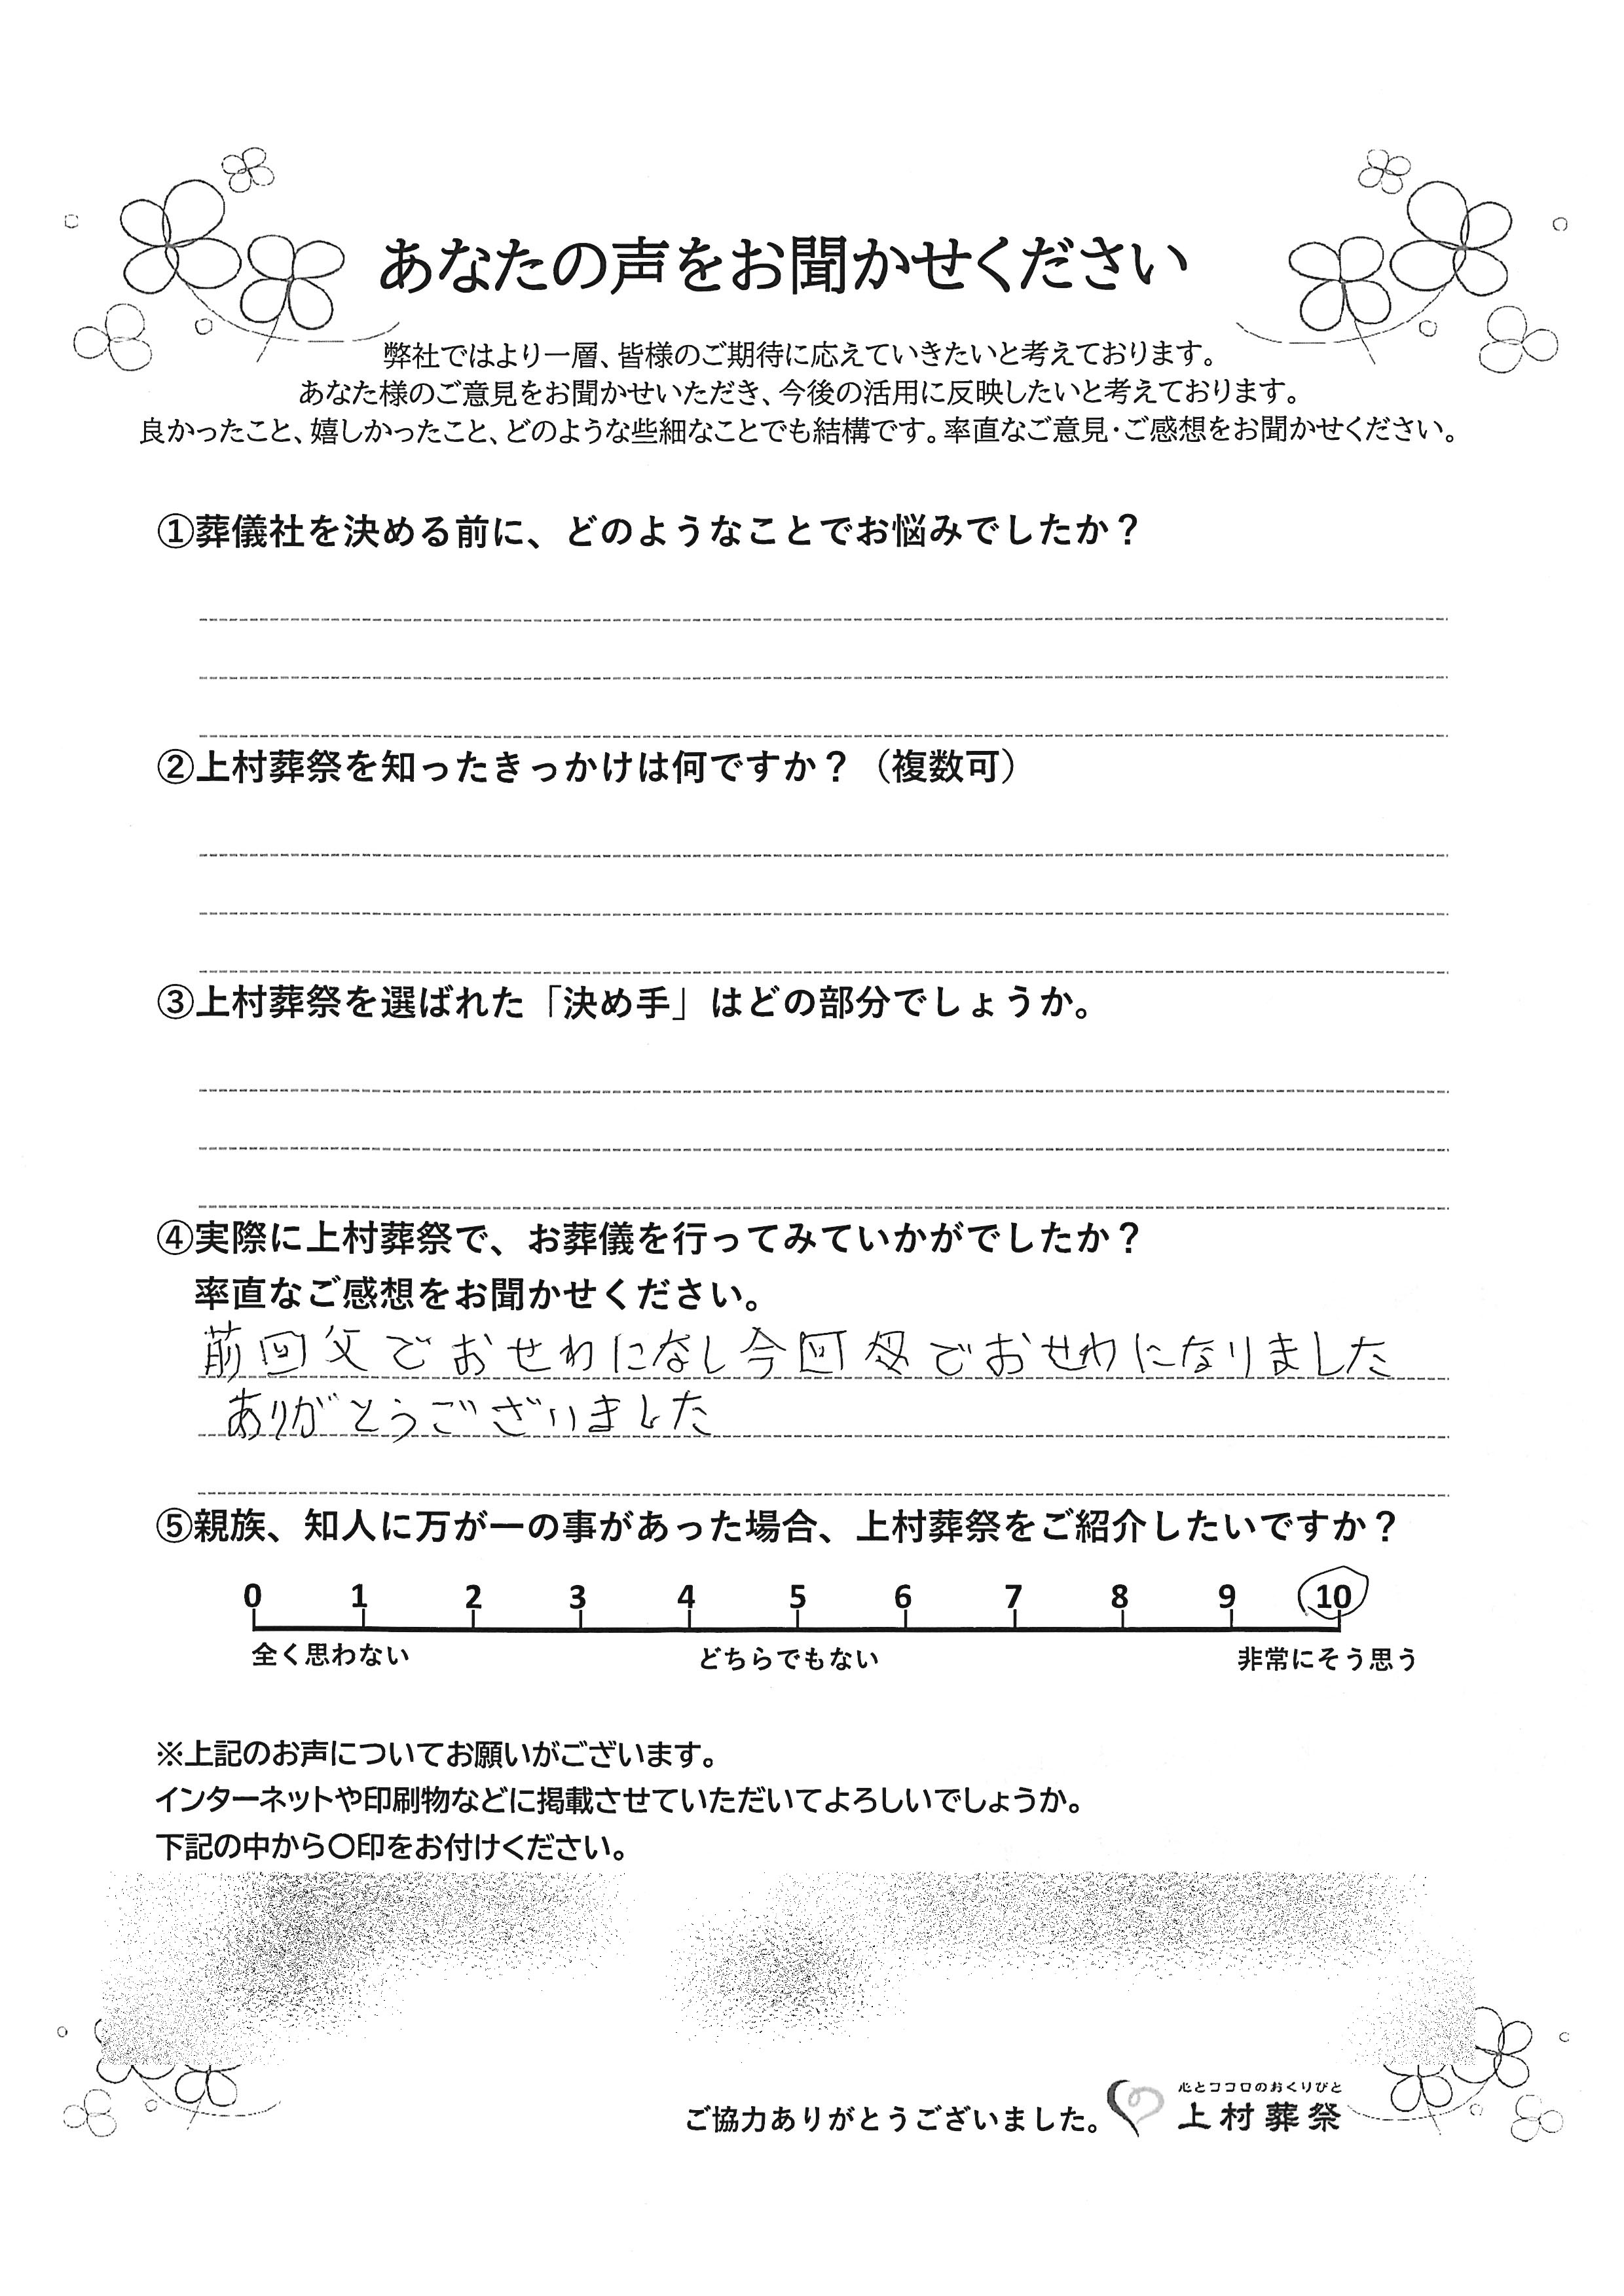 あなたの声をお聞かせください
弊社ではより一層、皆様のご期待に応えていきたいと考えております。
あなた様のご意見をお聞かせいただき、今後の活用に反映したいと考えております。
良かったこと、嬉しかったこと、どのような些細なことでも結構です。率直なご意見・ご感想をお聞かせください。
①葬儀社を決める前に、どのようなことでお悩みでしたか？
②上村葬祭を知ったきっかけは何ですか？（複数可）
③上村葬祭を選ばれた「決め手」はどの部分でしょうか。
④実際に上村葬祭で、お葬儀を行ってみていかがでしたか？
率直なご感想をお聞かせください。
前回父でおせわになし今回母でおせわになりました
ありがとうございました
⑤親族、知人に万が一の事があった場合、上村葬祭をご紹介したいですか？
0 1 2 3 4 5 6 7 8 9 10
全く思わない どちらでもない 非常にそう思う
※上記のお声についてお願いがございます。
インターネットや印刷物などに掲載させていただいてよろしいでしょうか。
下記の中から〇印をお付けください。
心とココロのおくりびと
ご協力ありがとうございました。 上村葬祭